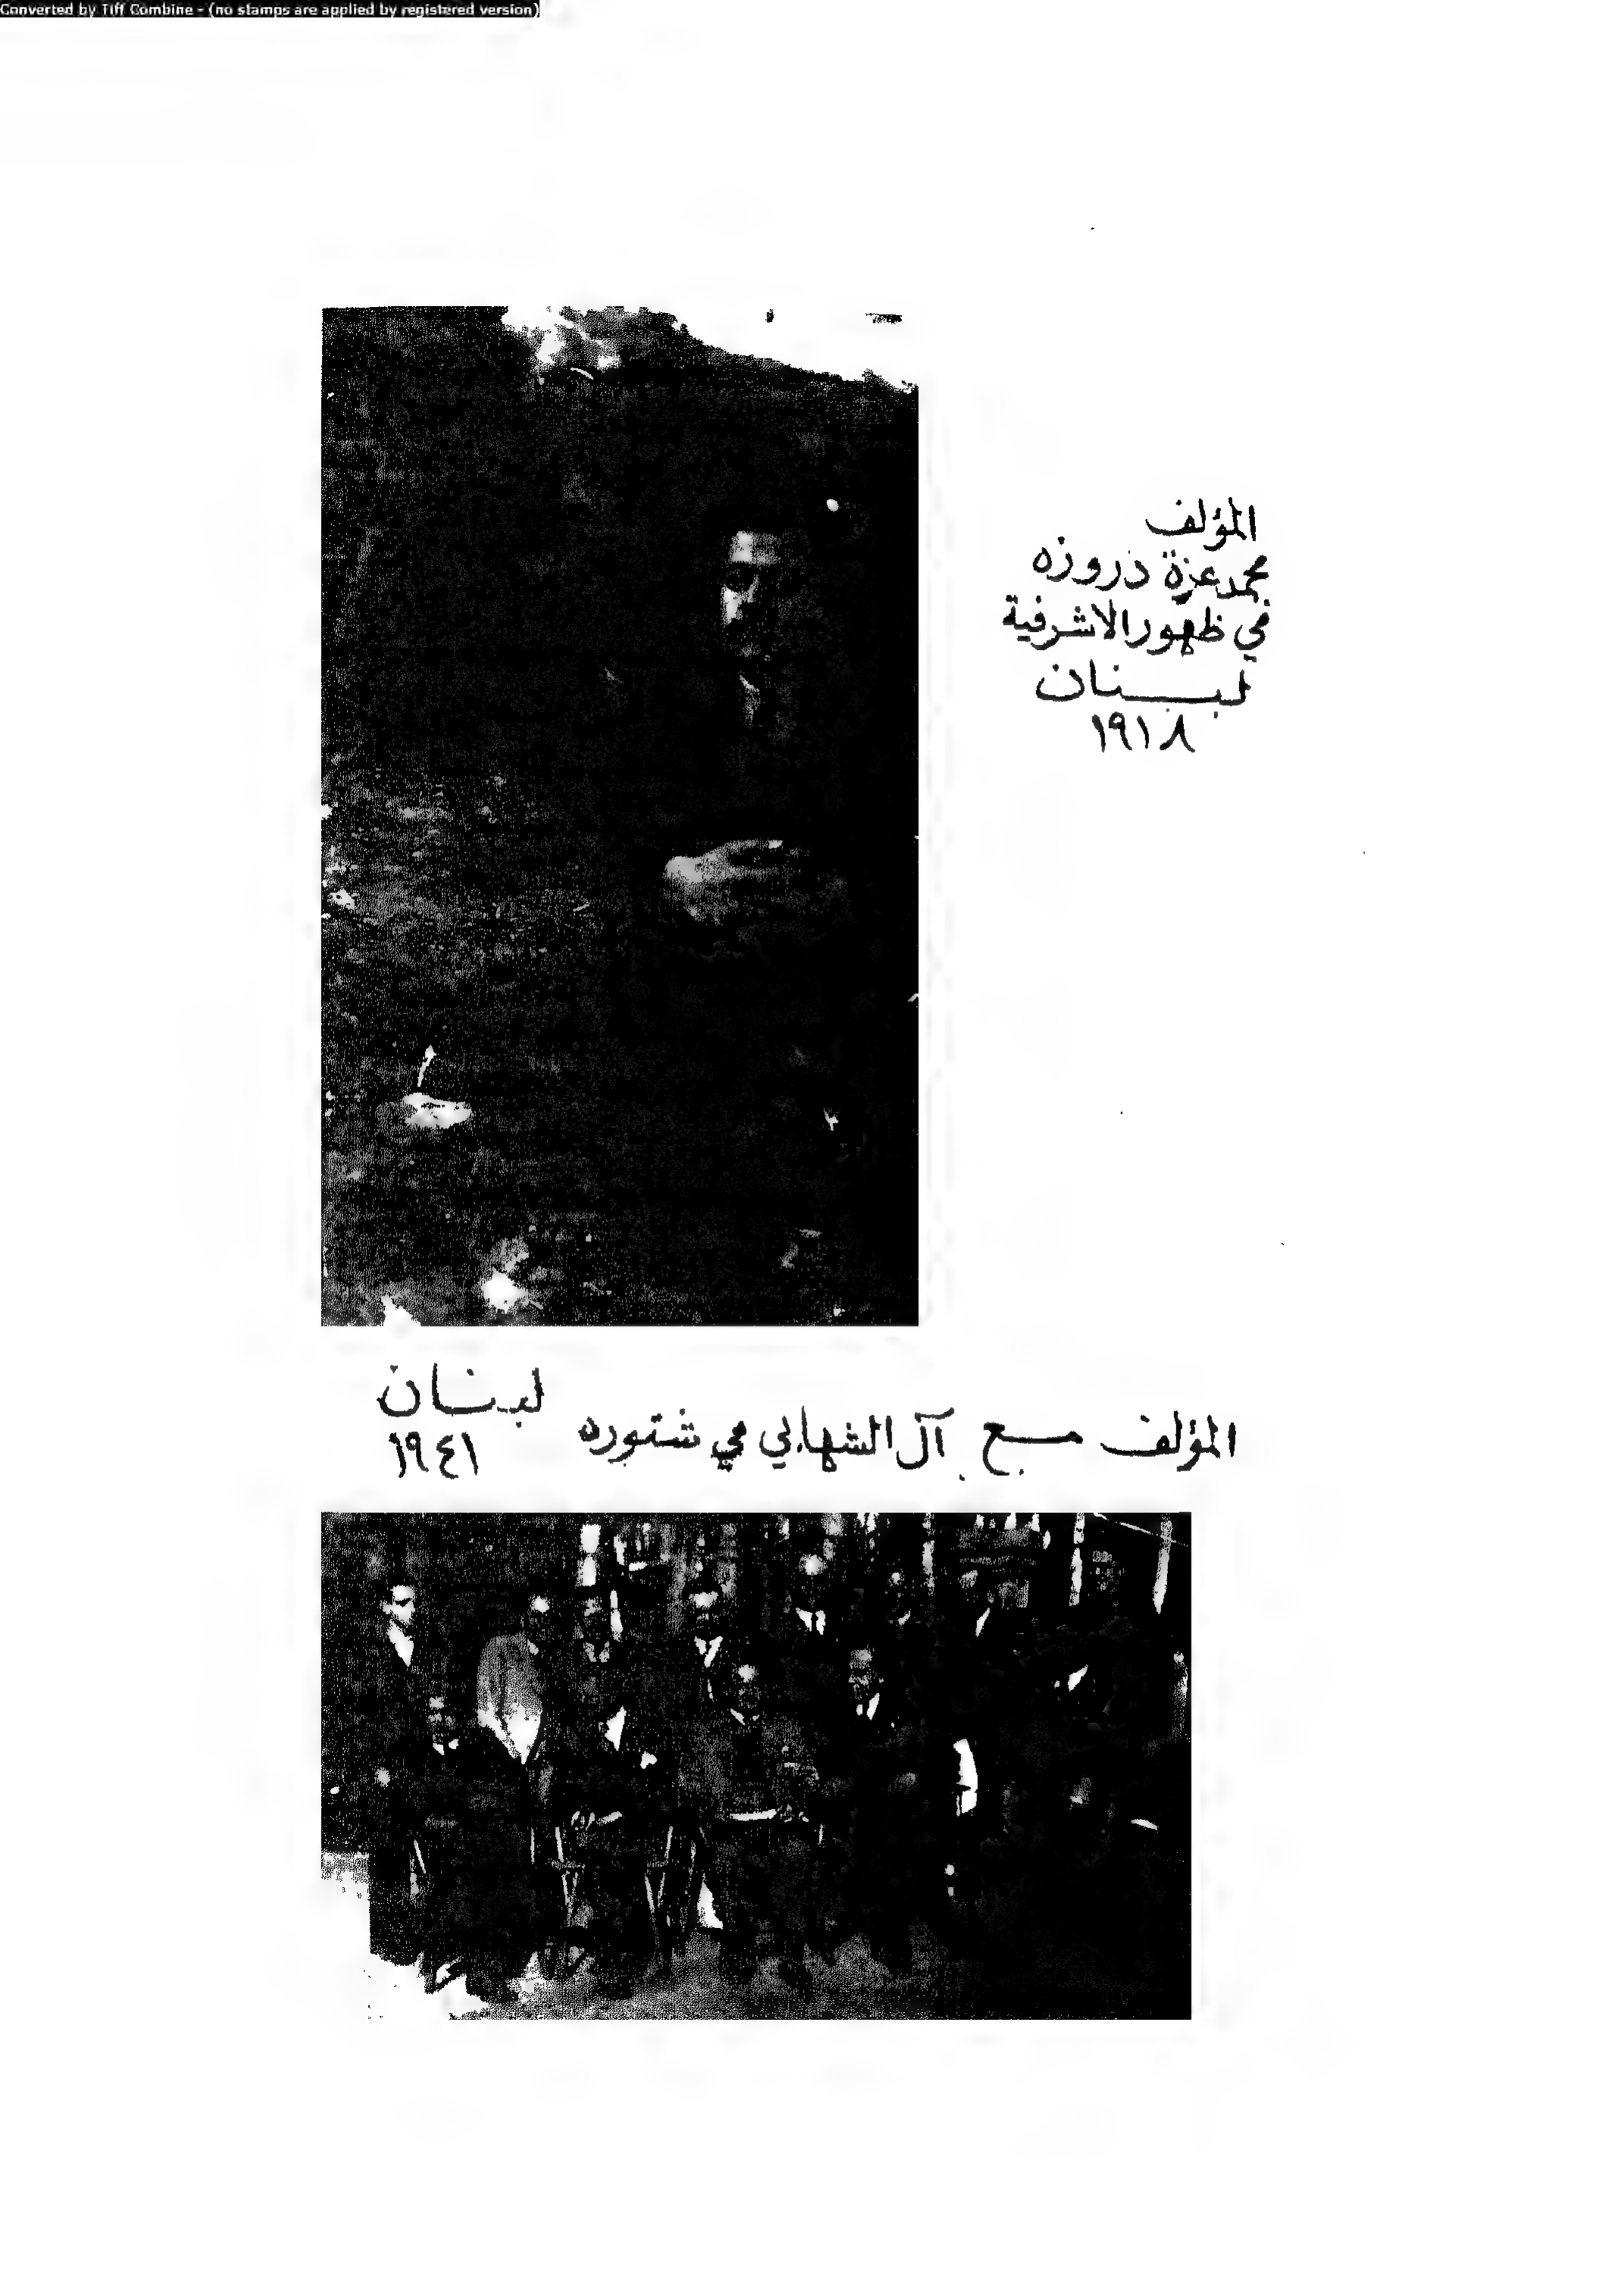 Converted by Tiff Combine - (no stamps are applied by registered version)
المؤلف
محمد عزة دروزه
في ظهور الاشرفية
لبنان
١٩١٨
لبنان
١٩٤١
المؤلف مع آل الشهابي في شتوره